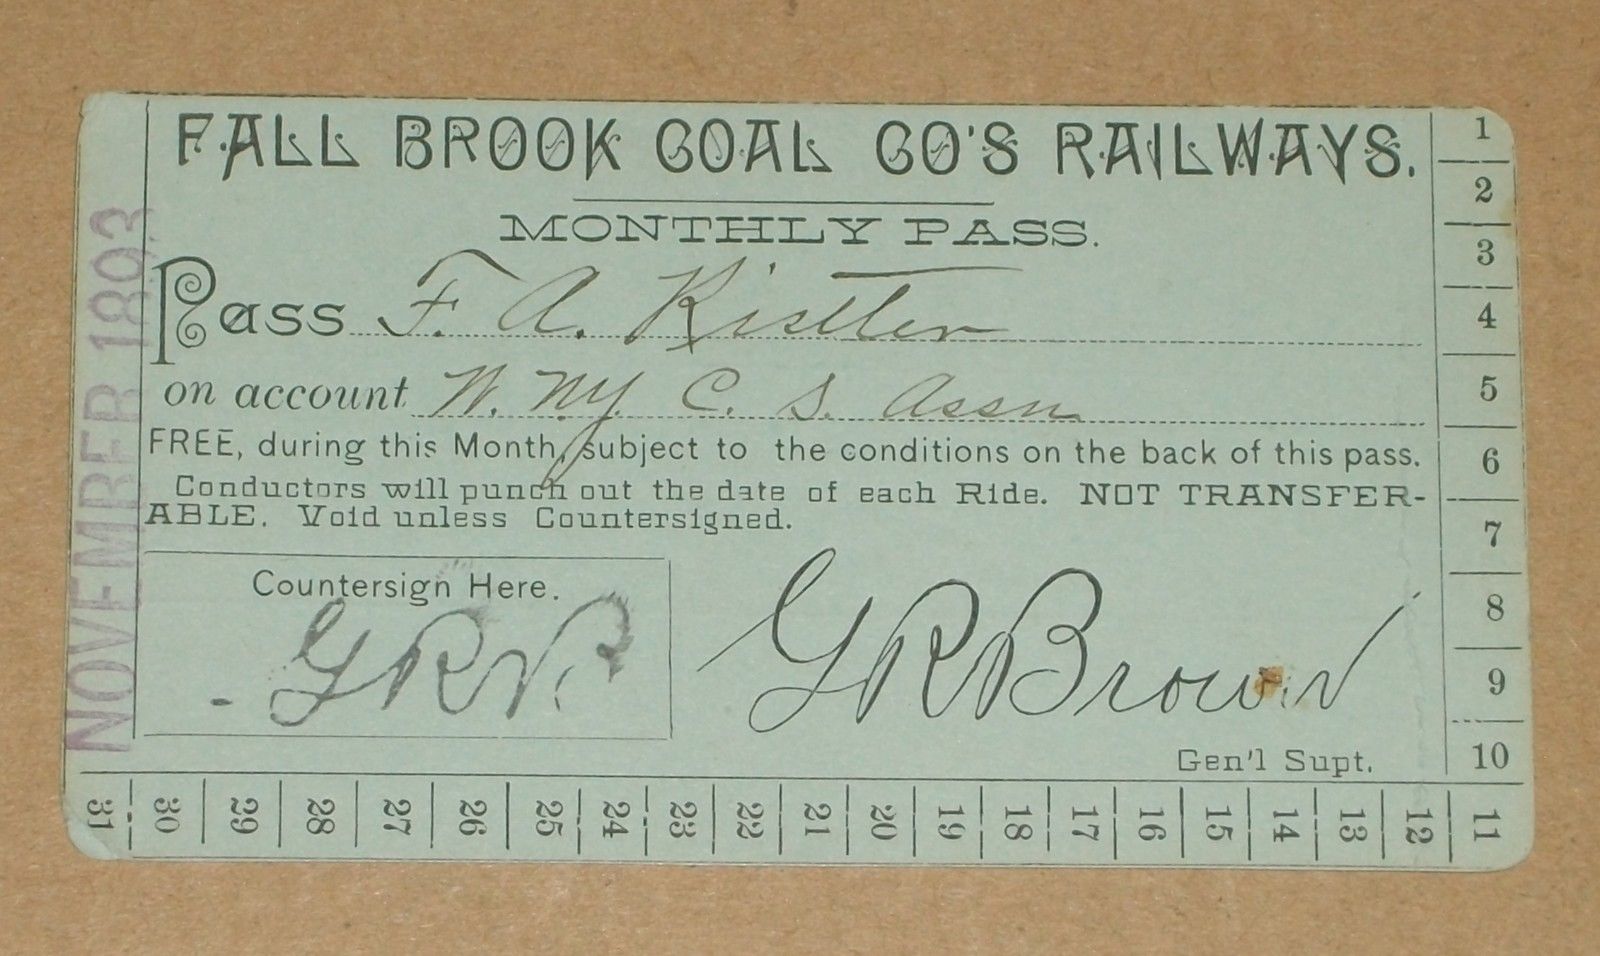 FALL BROOK COAL CO'S RAILWAYS.
MONTHLY PASS.
Pass F. A. Kistler
on account W. N.Y. C. S. Assn
FREE, during this Month, subject to the conditions on the back of this pass.
Conductors will punch out the date of each Ride. NOT TRANSFER-
ABLE. Void unless Countersigned.
Countersign Here.
GRB
GRBrown
Gen'l Supt.
NOVEMBER 1893
1
2
3
4
5
6
7
8
9
10
11
12
13
14
15
16
17
18
19
20
21
22
23
24
25
26
27
28
29
30
31